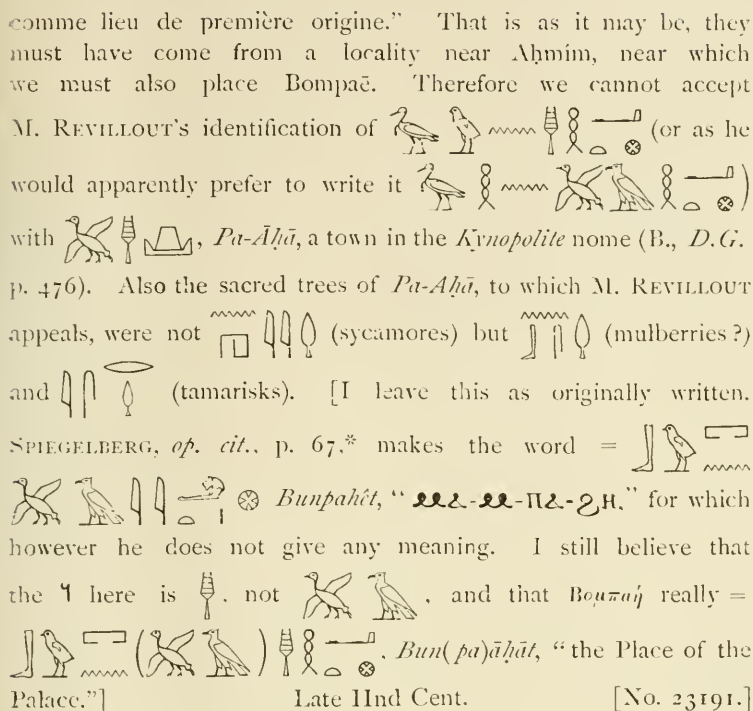 comme lieu de première origine.” That is as it may be, they
must have come from a locality near Aḥmím, near which
we must also place Bompaē. Therefore we cannot accept
M. REVILLOUT’S identification of (or as he
would apparently prefer to write it )
with , Pa-Āḥā, a town in the Kynopolite nome (B., D.G.
p. 476). Also the sacred trees of Pa-Aḥā, to which M. REVILLOUT
appeals, were not (sycamores) but (mulberries?)
and (tamarisks). [I leave this as originally written.
SPIEGELBERG, op. cit., p. 67,* makes the word =
Bunpahêt, “ⲙⲁ-ⲙ-ⲡⲁ-ϩⲏ,” for which
however he does not give any meaning. I still believe that
the here is , not , and that Βομπαή really =
( ) , Bun(pa)āḥāt, “the Place of the
Palace.”] Late IInd Cent. [No. 23191.]